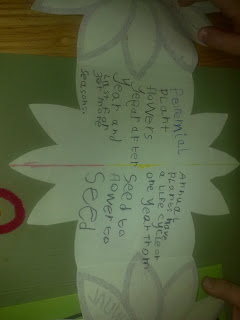 perennial
plant
flowers
year after
year and
last for
3 or more
seasons.
Annual
plants have
a life cycle of
one year from
seed to
flower to
seed